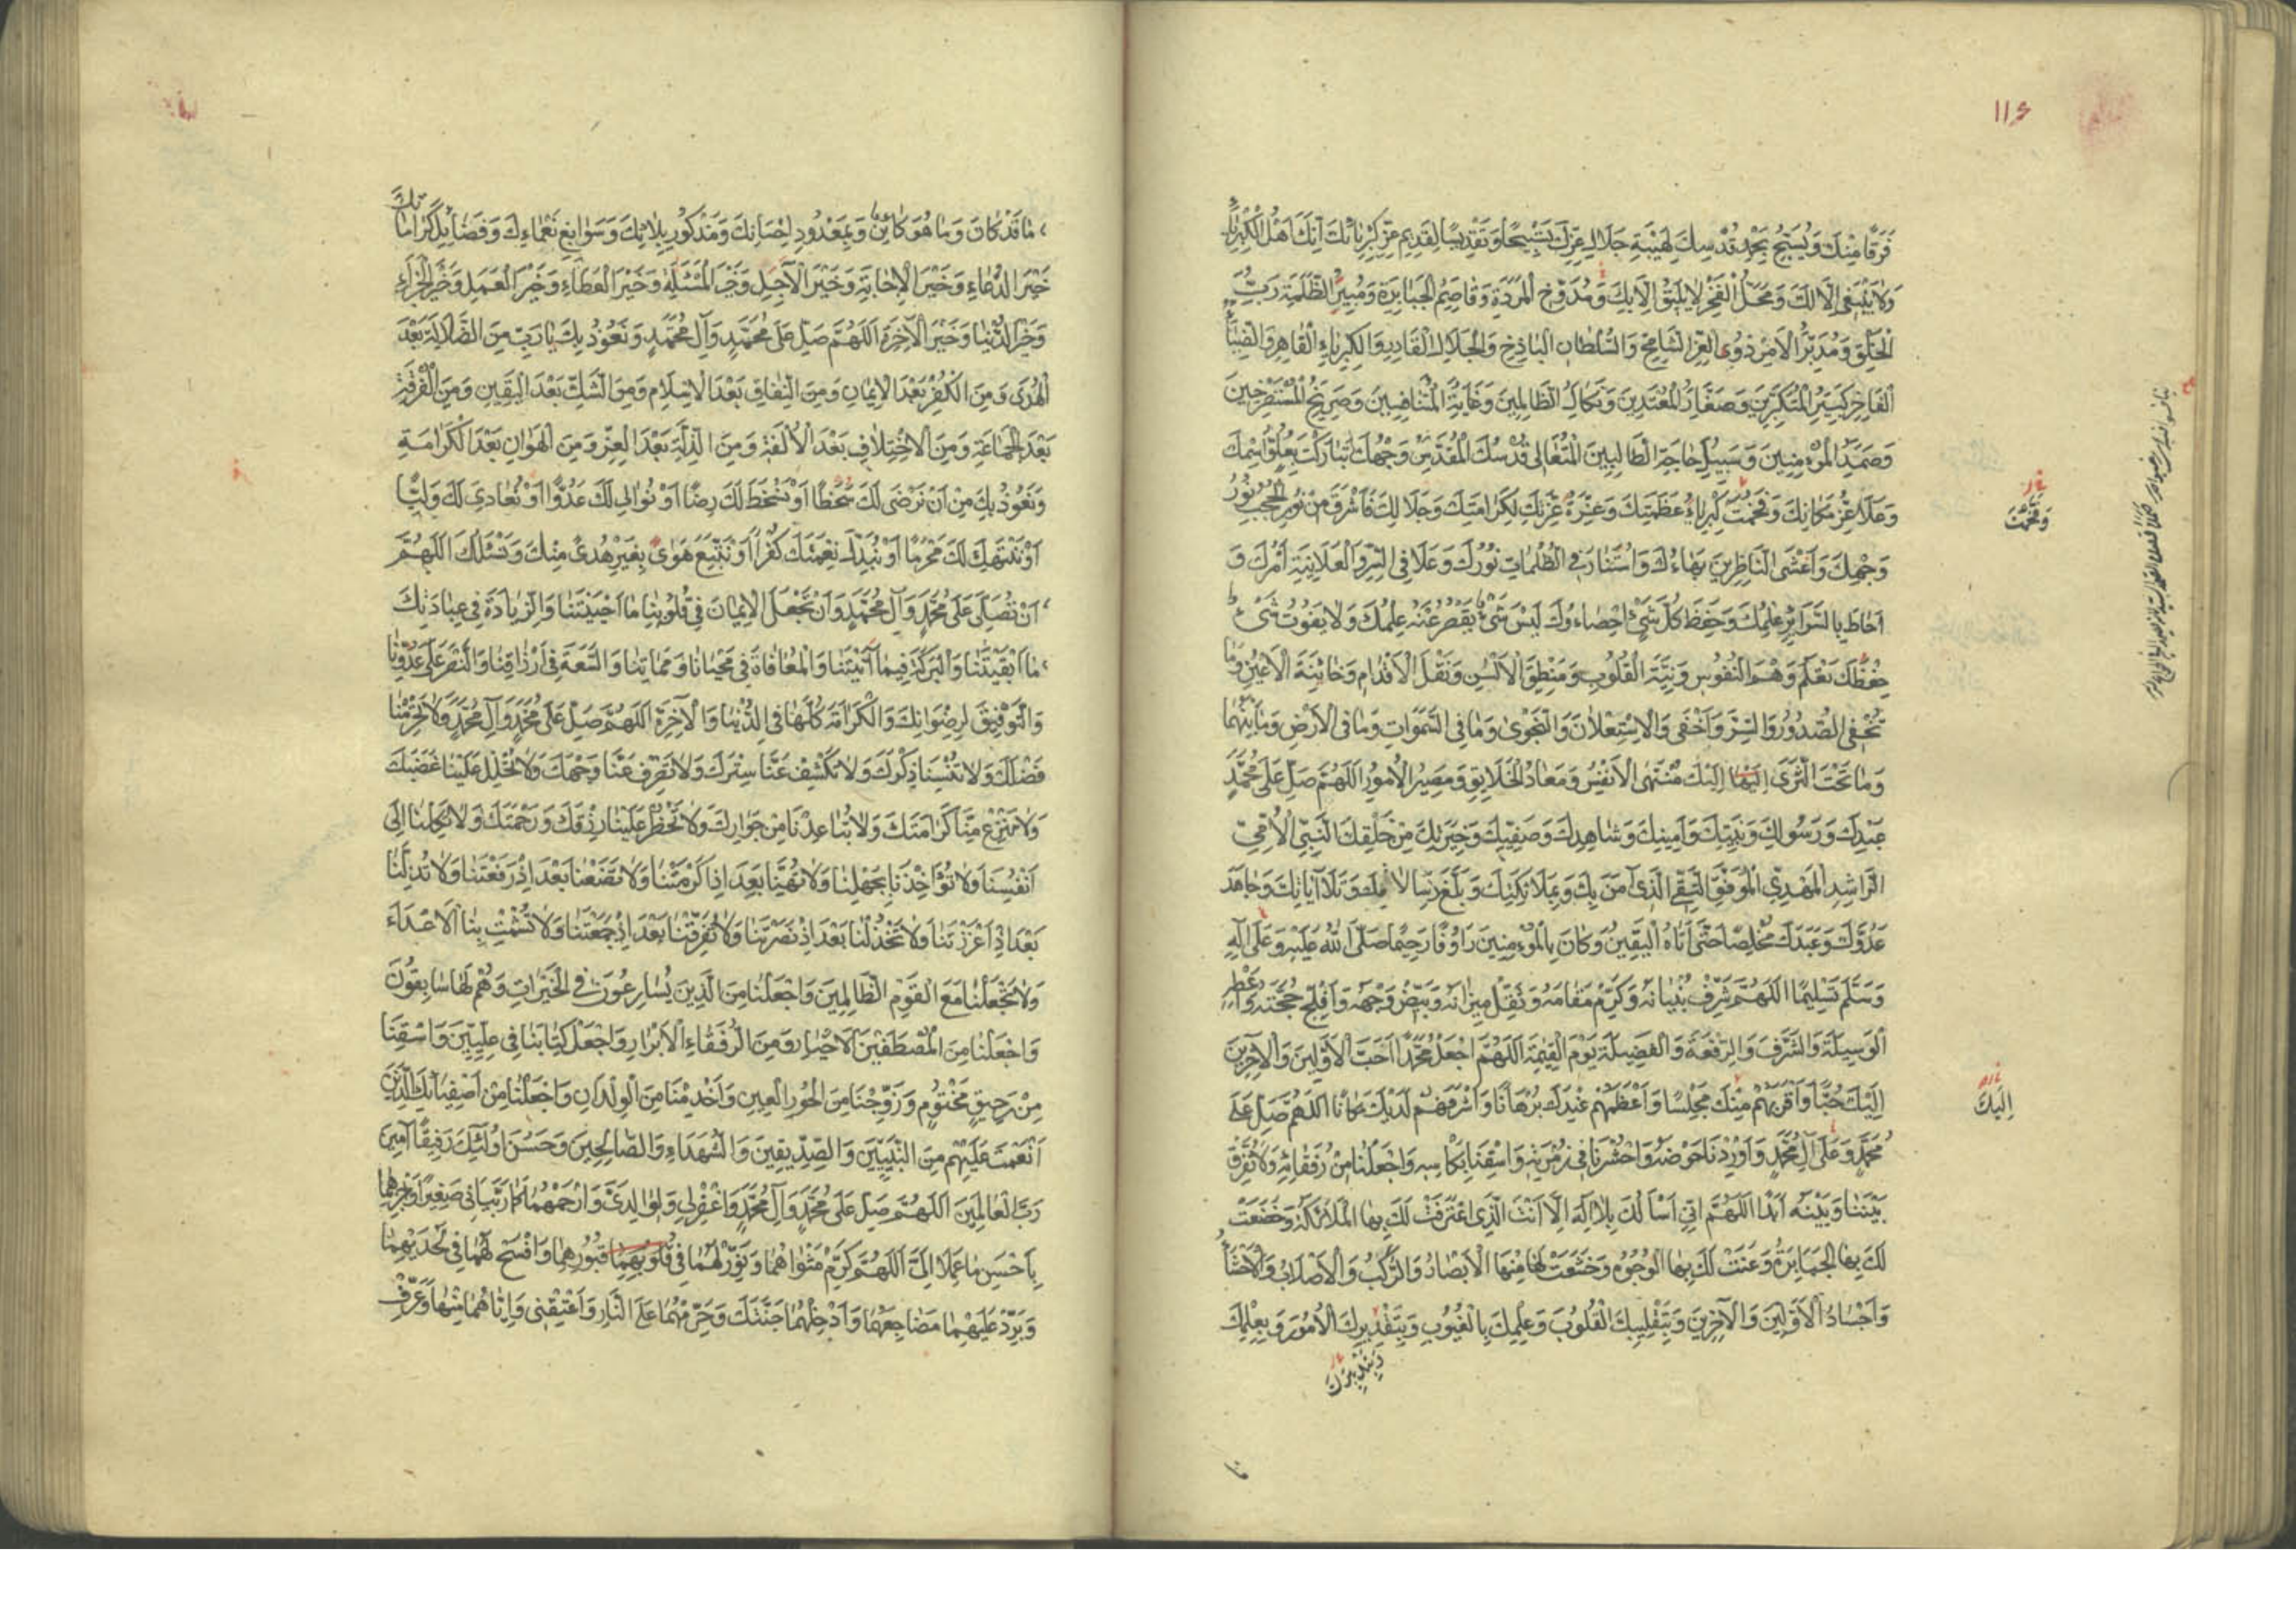 ١١٤
فَرَقًا مِنْكَ وَيُسَبِّحُ بِحَمْدِ قُدْسِكَ لِهَيْبَةِ جَلَالِ عِزِّكَ تَسْبِيحًا وَتَقْدِيسًا لِقَدِيمِ عِزِّ كِبْرِيَائِكَ اِنَّكَ اَهْلُ الْكِبْرِيَاءِ
وَلَا يَنْبَغِي اِلَّا لَكَ وَمَحَلُّ الْفَخْرِ لَا يَلِيقُ اِلَّا بِكَ وَمُدَوِّخِ الْمَرَدَةِ وَقَاصِمُ الْجَبَابِرَةِ وَمُبِيرُ الظَّلَمَةِ رَبُّ
الْخَلْقِ وَمُدَبِّرُ الْاَمْرِ ذُو الْعِزِّ الشَّامِخِ وَالسُّلْطَانِ الْبَاذِخِ وَالْجَلَالِ الْقَادِرِ وَالْكِبْرِيَاءِ الْقَاهِرِ وَالضِّيَاءِ
الْفَاخِرِ كَبِيرُ الْمُتَكَبِّرِينَ وَصَغَارُ الْمُعْتَدِينَ وَنَكَالُ الظَّالِمِينَ وَغَايَةُ الْمُتَنَافِسِينَ وَصَرِيخُ الْمُسْتَصْرِخِينَ
وَصَمَدُ الْمُؤْمِنِينَ وَسَبِيلُ حَاجَةِ الطَّالِبِينَ الْمُتَعَالِي قُدْسُكَ الْمُقَدَّسُ وَجْهُكَ تَبَارَكْتَ بِعُلُوِّ اسْمِكَ
وَعَلَا عِزُّ مَكَانِكَ وَفَخُمَتْ كِبْرِيَاءُ عَظَمَتِكَ وَعِزَّةُ عِزَّتِكَ لِكَرَامَتِكَ وَجَلَالِكَ فَاَشْرَقَ مِنْ نُورِ الْحُجُبِ نُورُ
وَفَخُمْتَ
وَجْهِكَ وَاَغْشَى النَّاظِرِينَ بَهَاءُكَ وَاسْتَنَارَ فِي الظُّلُمَاتِ نُورُكَ وَعَلَا فِي السِّرِّ وَالْعَلَانِيَةِ اَمْرُكَ وَ
اَحَاطَ بِالسَّرَائِرِ عِلْمُكَ وَحَفِظَ كُلَّ شَيْءٍ اِحْصَاءُكَ لَيْسَ شَيْءٌ يَقْصُرُ عَنْهُ عِلْمُكَ وَلَا يَفُوتُ شَيْءٌ
حِفْظَكَ تَعْلَمُ وَهْمَ النُّفُوسِ وَنِيَّةَ الْقُلُوبِ وَمَنْطِقَ الْاَلْسُنِ وَنَقْلَ الْاَقْدَامِ وَخَائِنَةَ الْاَعْيُنِ وَمَا
تُخْفِي الصُّدُورُ وَالسِّرَّ وَاَخْفَى وَالْاِسْتِعْلَانَ وَالنَّجْوَى وَمَا فِي السَّمَوَاتِ وَمَا فِي الْاَرْضِ وَمَا بَيْنَهُمَا
وَمَا تَحْتَ الثَّرَى اِلَيْهَا اِلَيْكَ مُنْتَهَى الْاَنْفُسِ وَمَعَادُ الْخَلَايِقِ وَمَصِيرُ الْاُمُورِ اَللَّهُمَّ صَلِّ عَلَى مُحَمَّدٍ
عَبْدِكَ وَرَسُولِكَ وَنَبِيِّكَ وَاَمِينِكَ وَشَاهِدِكَ وَصَفِيِّكَ وَخِيَرَتِكَ مِنْ خَلْقِكَ النَّبِيِّ الْاُمِّيِّ
الرَّاشِدِ الْمَهْدِيِّ الْمُوَفَّقِ التَّقِيِّ الَّذِي آمَنَ بِكَ وَبِمَلَائِكَتِكَ وَبَلَّغَ رِسَالَاتِكَ وَتَلَا آيَاتِكَ وَجَاهَدَ
عَدُوَّكَ وَعَبَدَكَ مُخْلِصًا حَتَّى اَتَاهُ الْيَقِينُ وَكَانَ بِالْمُؤْمِنِينَ رَاوُفًا رَحِيمًا صَلَّى اللهُ عَلَيْهِ وَعَلَى آلِهِ
وَسَلَّمَ تَسْلِيمًا اَللَّهُمَّ شَرِّفْ بُنْيَانَهُ وَكَرِّمْ مَقَامَهُ وَثَقِّلْ مِيزَانَهُ وَبَيِّضْ وَجْهَهُ وَاَفْلِجْ حُجَّتَهُ وَاَعْطِهِ
الْوَسِيلَةَ وَالشَّرَفَ وَالرِّفْعَةَ وَالْفَضِيلَةَ يَوْمَ الْقِيمَةِ اَللَّهُمَّ اجْعَلْ مُحَمَّدًا اَحَبَّ الْاَوَّلِينَ وَالْآخِرِينَ
اِلَيْكَ حُبًّا وَاَقْرَبَهُمْ مِنْكَ مَجْلِسًا وَاَعْظَمَهُمْ عِنْدَكَ بُرْهَانًا وَاَشْرَفَهُمْ لَدَيْكَ مَكَانًا اَللَّهُمَّ صَلِّ عَلَى
اِلَيْكَ
مُحَمَّدٍ وَعَلَى آلِ مُحَمَّدٍ وَاَوْرِدْنَا حَوْضَهُ وَاحْشُرْنَا فِي زُمْرَتِهِ وَاسْقِنَا بِكَاْسِهِ وَاجْعَلْنَا مِنْ رُفَقَائِهِ وَلَا تُفَرِّقْ
بَيْنَنَا وَبَيْنَهُ اَبَدًا اَللَّهُمَّ اِنِّي اَسْاَلُكَ بِلَا اِلَهَ اِلَّا اَنْتَ الَّذِي اعْتَرَفَتْ لَكَ بِهَا الْمَلَائِكَةُ وَخَضَعَتْ
لَكَ بِهَا الْجَبَابِرَةُ وَعَنَتْ لَكَ بِهَا الْوُجُوهُ وَخَشَعَتْ لَهَا مِنْهَا الْاَبْصَارُ وَالرُّكَبُ وَالْاَصْلَابُ وَالْاَحْشَاءُ
وَاَجْسَادُ الْاَوَّلِينَ وَالْآخِرِينَ وَبِتَقْلِيبِكَ الْقُلُوبَ وَعِلْمِكَ بِالْغُيُوبِ وَبِتَقْدِيرِكَ الْاُمُورَ وَبِعِلْمِكَ
وَبِتَدْبِيرِكَ
مَا قَدْ كَانَ وَمَا هُوَ كَائِنٌ وَبِمَعْدُودِ اِحْسَانِكَ وَمَذْكُورِ بَلَائِكَ وَسَوَابِغِ نَعْمَاءِكَ وَفَضَائِلِ كَرَامَاتِكَ
خَيْرَ الدُّعَاءِ وَخَيْرَ الْاِجَابَةِ وَخَيْرَ الْآجِلِ وَخَيْرَ الْمَسْئَلَةِ وَخَيْرَ الْعَطَاءِ وَخَيْرَ الْعَمَلِ وَخَيْرَ الْجَزَاءِ
وَخَيْرَ الدُّنْيَا وَخَيْرَ الْآخِرَةِ اَللَّهُمَّ صَلِّ عَلَى مُحَمَّدٍ وَآلِ مُحَمَّدٍ وَنَعُوذُ بِكَ يَا رَبِّ مِنَ الضَّلَالَةِ بَعْدَ
الْهُدَى وَمِنَ الْكُفْرِ بَعْدَ الْاِيمَانِ وَمِنَ النِّفَاقِ بَعْدَ الْاِسْلَامِ وَمِنَ الشَّكِّ بَعْدَ الْيَقِينِ وَمِنَ الْفُرْقَةِ
بَعْدَ الْجَمَاعَةِ وَمِنَ الْاِخْتِلَافِ بَعْدَ الْاُلْفَةِ وَمِنَ الذِّلَّةِ بَعْدَ الْعِزِّ وَمِنَ الْهَوَانِ بَعْدَ الْكَرَامَةِ
وَنَعُوذُ بِكَ مِنْ اَنْ نَرْضَى لَكَ سَخَطًا اَوْ نَسْخَطَ لَكَ رِضًا اَوْ نُوَالِيَ لَكَ عَدُوًّا اَوْ نُعَادِيَ لَكَ وَلِيًّا
اَوْ نَنْتَهِكَ لَكَ مَحْرَمًا اَوْ نُبَدِّلَ نِعْمَتَكَ كُفْرًا اَوْ نَتَّبِعَ هَوًى بِغَيْرِ هُدًى مِنْكَ وَنَسْئَلُكَ اَللَّهُمَّ
اَنْ تُصَلِّيَ عَلَى مُحَمَّدٍ وَآلِ مُحَمَّدٍ وَاَنْ تَجْعَلَ الْاِيمَانَ فِي قُلُوبِنَا مَا اَحْيَيْتَنَا وَالزِّيَادَةَ فِي عِبَادَتِكَ
مَا اَبْقَيْتَنَا وَالْبَرَكَةَ فِيمَا آتَيْتَنَا وَالْمُعَافَاةَ فِي مَحْيَانَا وَمَمَاتِنَا وَالسَّعَةَ فِي اَرْزَاقِنَا وَالنَّصْرَ عَلَى عَدُوِّنَا
وَالتَّوْفِيقَ لِرِضْوَانِكَ وَالْكَرَامَةَ كُلَّهَا فِي الدُّنْيَا وَالْآخِرَةِ اَللَّهُمَّ صَلِّ عَلَى مُحَمَّدٍ وَآلِ مُحَمَّدٍ وَلَا تَحْرِمْنَا
فَضْلَكَ وَلَا تُنْسِنَا ذِكْرَكَ وَلَا تَكْشِفْ عَنَّا سِتْرَكَ وَلَا تَصْرِفْ عَنَّا وَجْهَكَ وَلَا تُحْلِلْ عَلَيْنَا غَضَبَكَ
وَلَا تَنْزِعْ مِنَّا كَرَامَتَكَ وَلَا تُبَاعِدْنَا مِنْ جَوَارِكَ وَلَا تَحْظُرْ عَلَيْنَا رِزْقَكَ وَرَحْمَتَكَ وَلَا تَكِلْنَا اِلَى
اَنْفُسِنَا وَلَا تُؤَاخِذْنَا بِجَهْلِنَا وَلَا تُهِنَّا بَعْدَ اِذْ اَكْرَمْتَنَا وَلَا تَضَعْنَا بَعْدَ اِذْ رَفَعْتَنَا وَلَا تُذِلَّنَا
بَعْدَ اِذْ اَعْزَزْتَنَا وَلَا تَخْذُلْنَا بَعْدَ اِذْ نَصَرْتَنَا وَلَا تُفَرِّقْنَا بَعْدَ اِذْ جَمَعْتَنَا وَلَا تُشْمِتْ بِنَا الْاَعْدَاءَ
وَلَا تَجْعَلْنَا مَعَ الْقَوْمِ الظَّالِمِينَ وَاجْعَلْنَا مِنَ الَّذِينَ يُسَارِعُونَ فِي الْخَيْرَاتِ وَهُمْ لَهَا سَابِقُونَ
وَاجْعَلْنَا مِنَ الْمُصْطَفَيْنَ الْاَخْيَارِ وَمِنَ الرُّفَقَاءِ الْاَبْرَارِ وَاجْعَلْ كِتَابَنَا فِي عِلِّيِّينَ وَاسْقِنَا
مِنْ رَحِيقٍ مَخْتُومٍ وَزَوِّجْنَا مِنَ الْحُورِ الْعِينِ وَاَخْدِمْنَا مِنَ الْوِلْدَانِ وَاجْعَلْنَا مِنْ اَصْفِيَائِكَ الَّذِينَ
اَنْعَمْتَ عَلَيْهِمْ مِنَ النَّبِيِّينَ وَالصِّدِّيقِينَ وَالشُّهَدَاءِ وَالصَّالِحِينَ وَحَسُنَ اُولَئِكَ رَفِيقًا آمِينَ
رَبَّ الْعَالَمِينَ اَللَّهُمَّ صَلِّ عَلَى مُحَمَّدٍ وَآلِ مُحَمَّدٍ وَاغْفِرْ لِي وَلِوَالِدَيَّ وَارْحَمْهُمَا كَمَا رَبَّيَانِي صَغِيرًا وَاجْزِهِمَا
بِاَحْسَنِ مَا عَمِلَا اِلَيَّ اَللَّهُمَّ كَرِّمْ مَثْوَاهُمَا وَنَوِّرْ لَهُمَا فِي قُلُوبِهِمَا قُبُورِهِمَا وَافْسَحْ لَهُمَا فِي لَحْدَيْهِمَا
وَبَرِّدْ عَلَيْهِمَا مَضَاجِعَهُمَا وَاَدْخِلْهُمَا جَنَّتَكَ وَحَرِّمْهُمَا عَلَى النَّارِ وَاَعْتِقْنِي وَاِيَّاهُمَا مِنْهَا وَعَرِّفْ